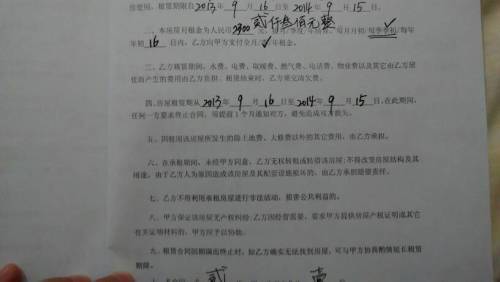 房使用。租赁期限自2013年9月16日至2014年9月15日。
贰仟叁佰元整
二、本房屋月租金为人民币2300元，按月/季度/年结算。每月月初/每季季初/每年
年初16日内，乙方向甲方支付全月/季/年租金。
三、乙方租赁期间，水费、电费、取暖费、燃气费、电话费、物业费以及其它由乙方居
住而产生的费用由乙方负担。租赁结束时，乙方须交清欠费。
四、房屋租赁期从2013年9月16日至2014年9月15日，在此期间，
任何一方要求终止合同，须提前1个月通知对方，避免造成双方损失。
五、因租用该房屋所发生的除土地费、大修费以外的其它费用，由乙方承担。
六、在承租期间，未经甲方同意，乙方无权转租或转借该房屋；不得改变房屋结构及其
用途，由于乙方人为原因造成该房屋及其配套设施损坏的，由乙方承担赔偿责任。
七、乙方不得利用承租房屋进行非法活动，损害公共利益的。
八、甲方保证该房屋无产权纠纷；乙方因经营需要，要求甲方提供房屋产权证明或其它
有关证明材料的，甲方应予以协助。
九、租赁合同因期满而终止时，如乙方确实无法找到房屋，可与甲方协商酌情延长租赁
期限。
贰